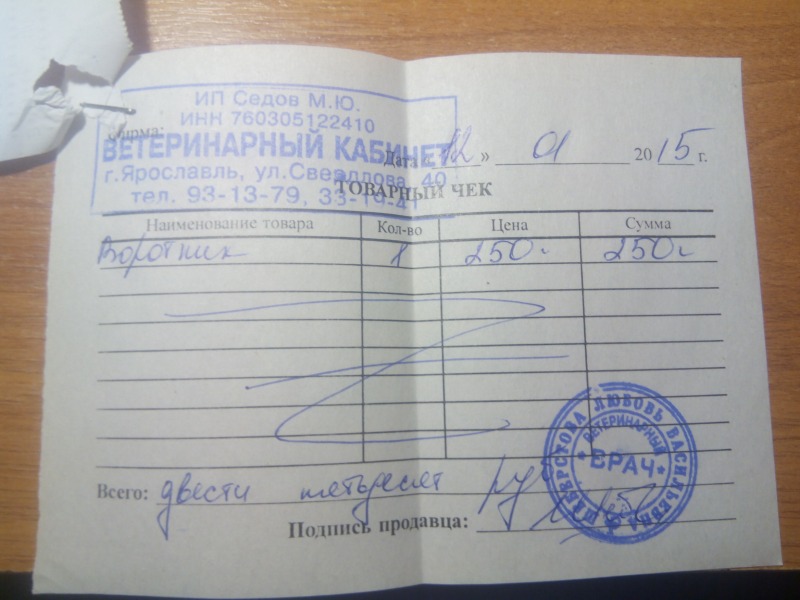 ИП Седов М.Ю.
ИНН 760305122410
Фирма:
ВЕТЕРИНАРНЫЙ КАБИНЕТ
Дата «12» 01 2015 г.
г.Ярославль, ул.Свердлова, 40
ТОВАРНЫЙ ЧЕК
тел. 93-13-79, 33-19-41
Наименование товара Кол-во Цена Сумма
Воротник 1 250- 250-
ЛЮБОВЬ ВАСИЛЬЕВНА
ВЕТЕРИНАРНЫЙ
ВРАЧ
Всего: двести пятьдесят руб
Подпись продавца: